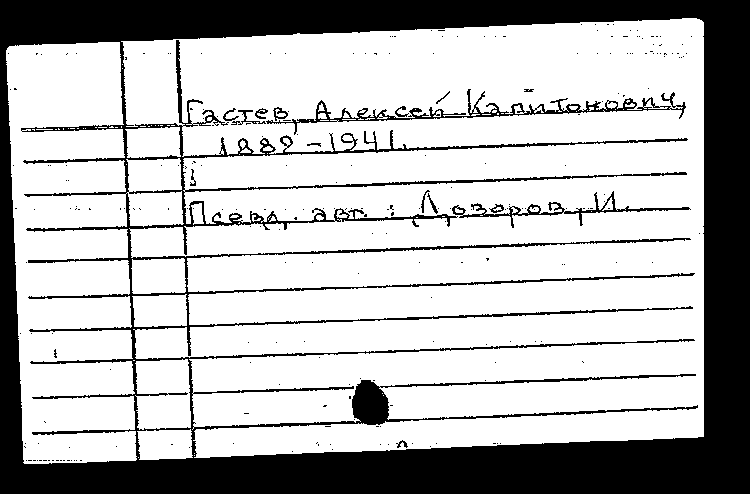 Гастев, Алексей Капитонович,
1882-1941.
Псевд. авт.: Дозоров, И.